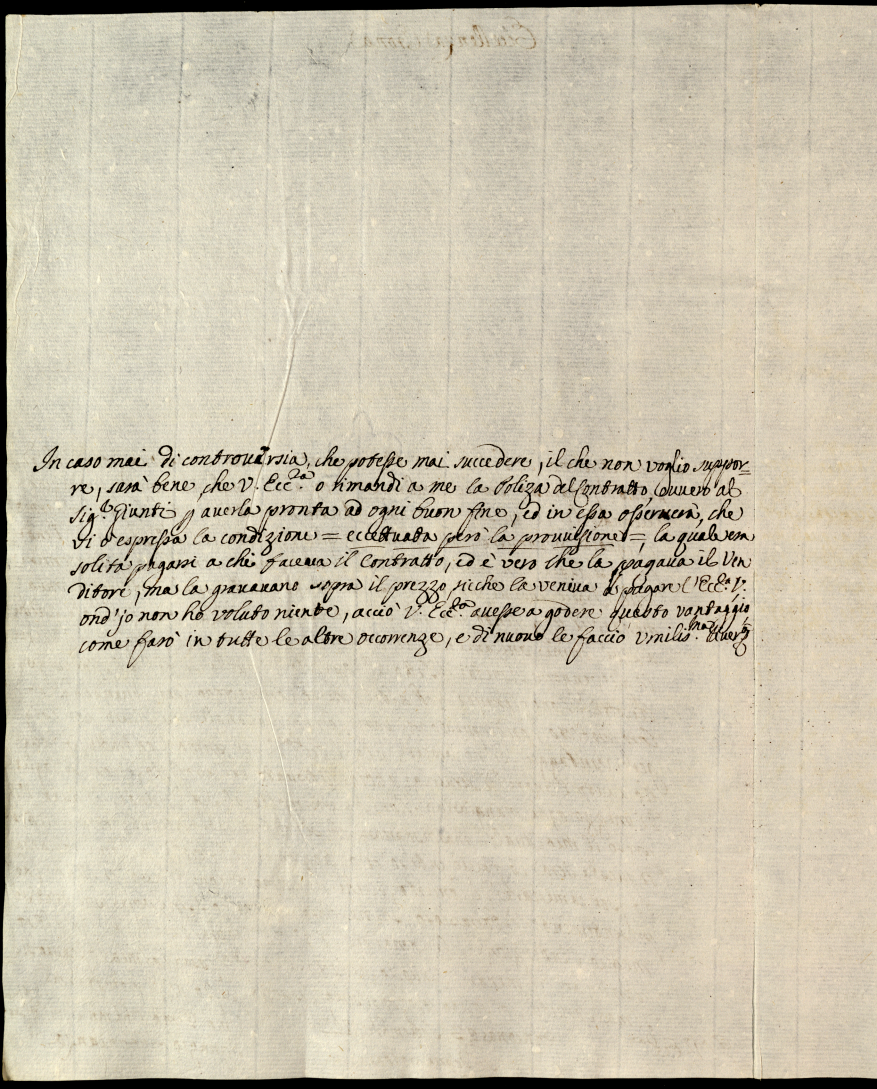 In caso mai di controuersia, che potesse mai succedere, il che non voglio suppor=
re, sarà bene che V. Ecc.za o rimandi a me la Poliza del Contratto, ouuero al
Sig.r Giunti p auerla pronta ad ogni buon fine, ed in essa osseruerà, che
vi è espressa la condizione = eccettuata però la prouuisione =, la quale era
solita pagarsi a chi faceua il Contratto, ed è vero che la pagaua il Ven
ditore, ma la grauauano sopra il prezzo, sicche la veniua à pagare l'Ecc.a V.
ond'jo non ho voluto niente, acciò V. Ecc.za auesse a godere questo vantaggio,
come farò in tutte le altre occorrenze, e di nuouo le faccio vmilis.ma